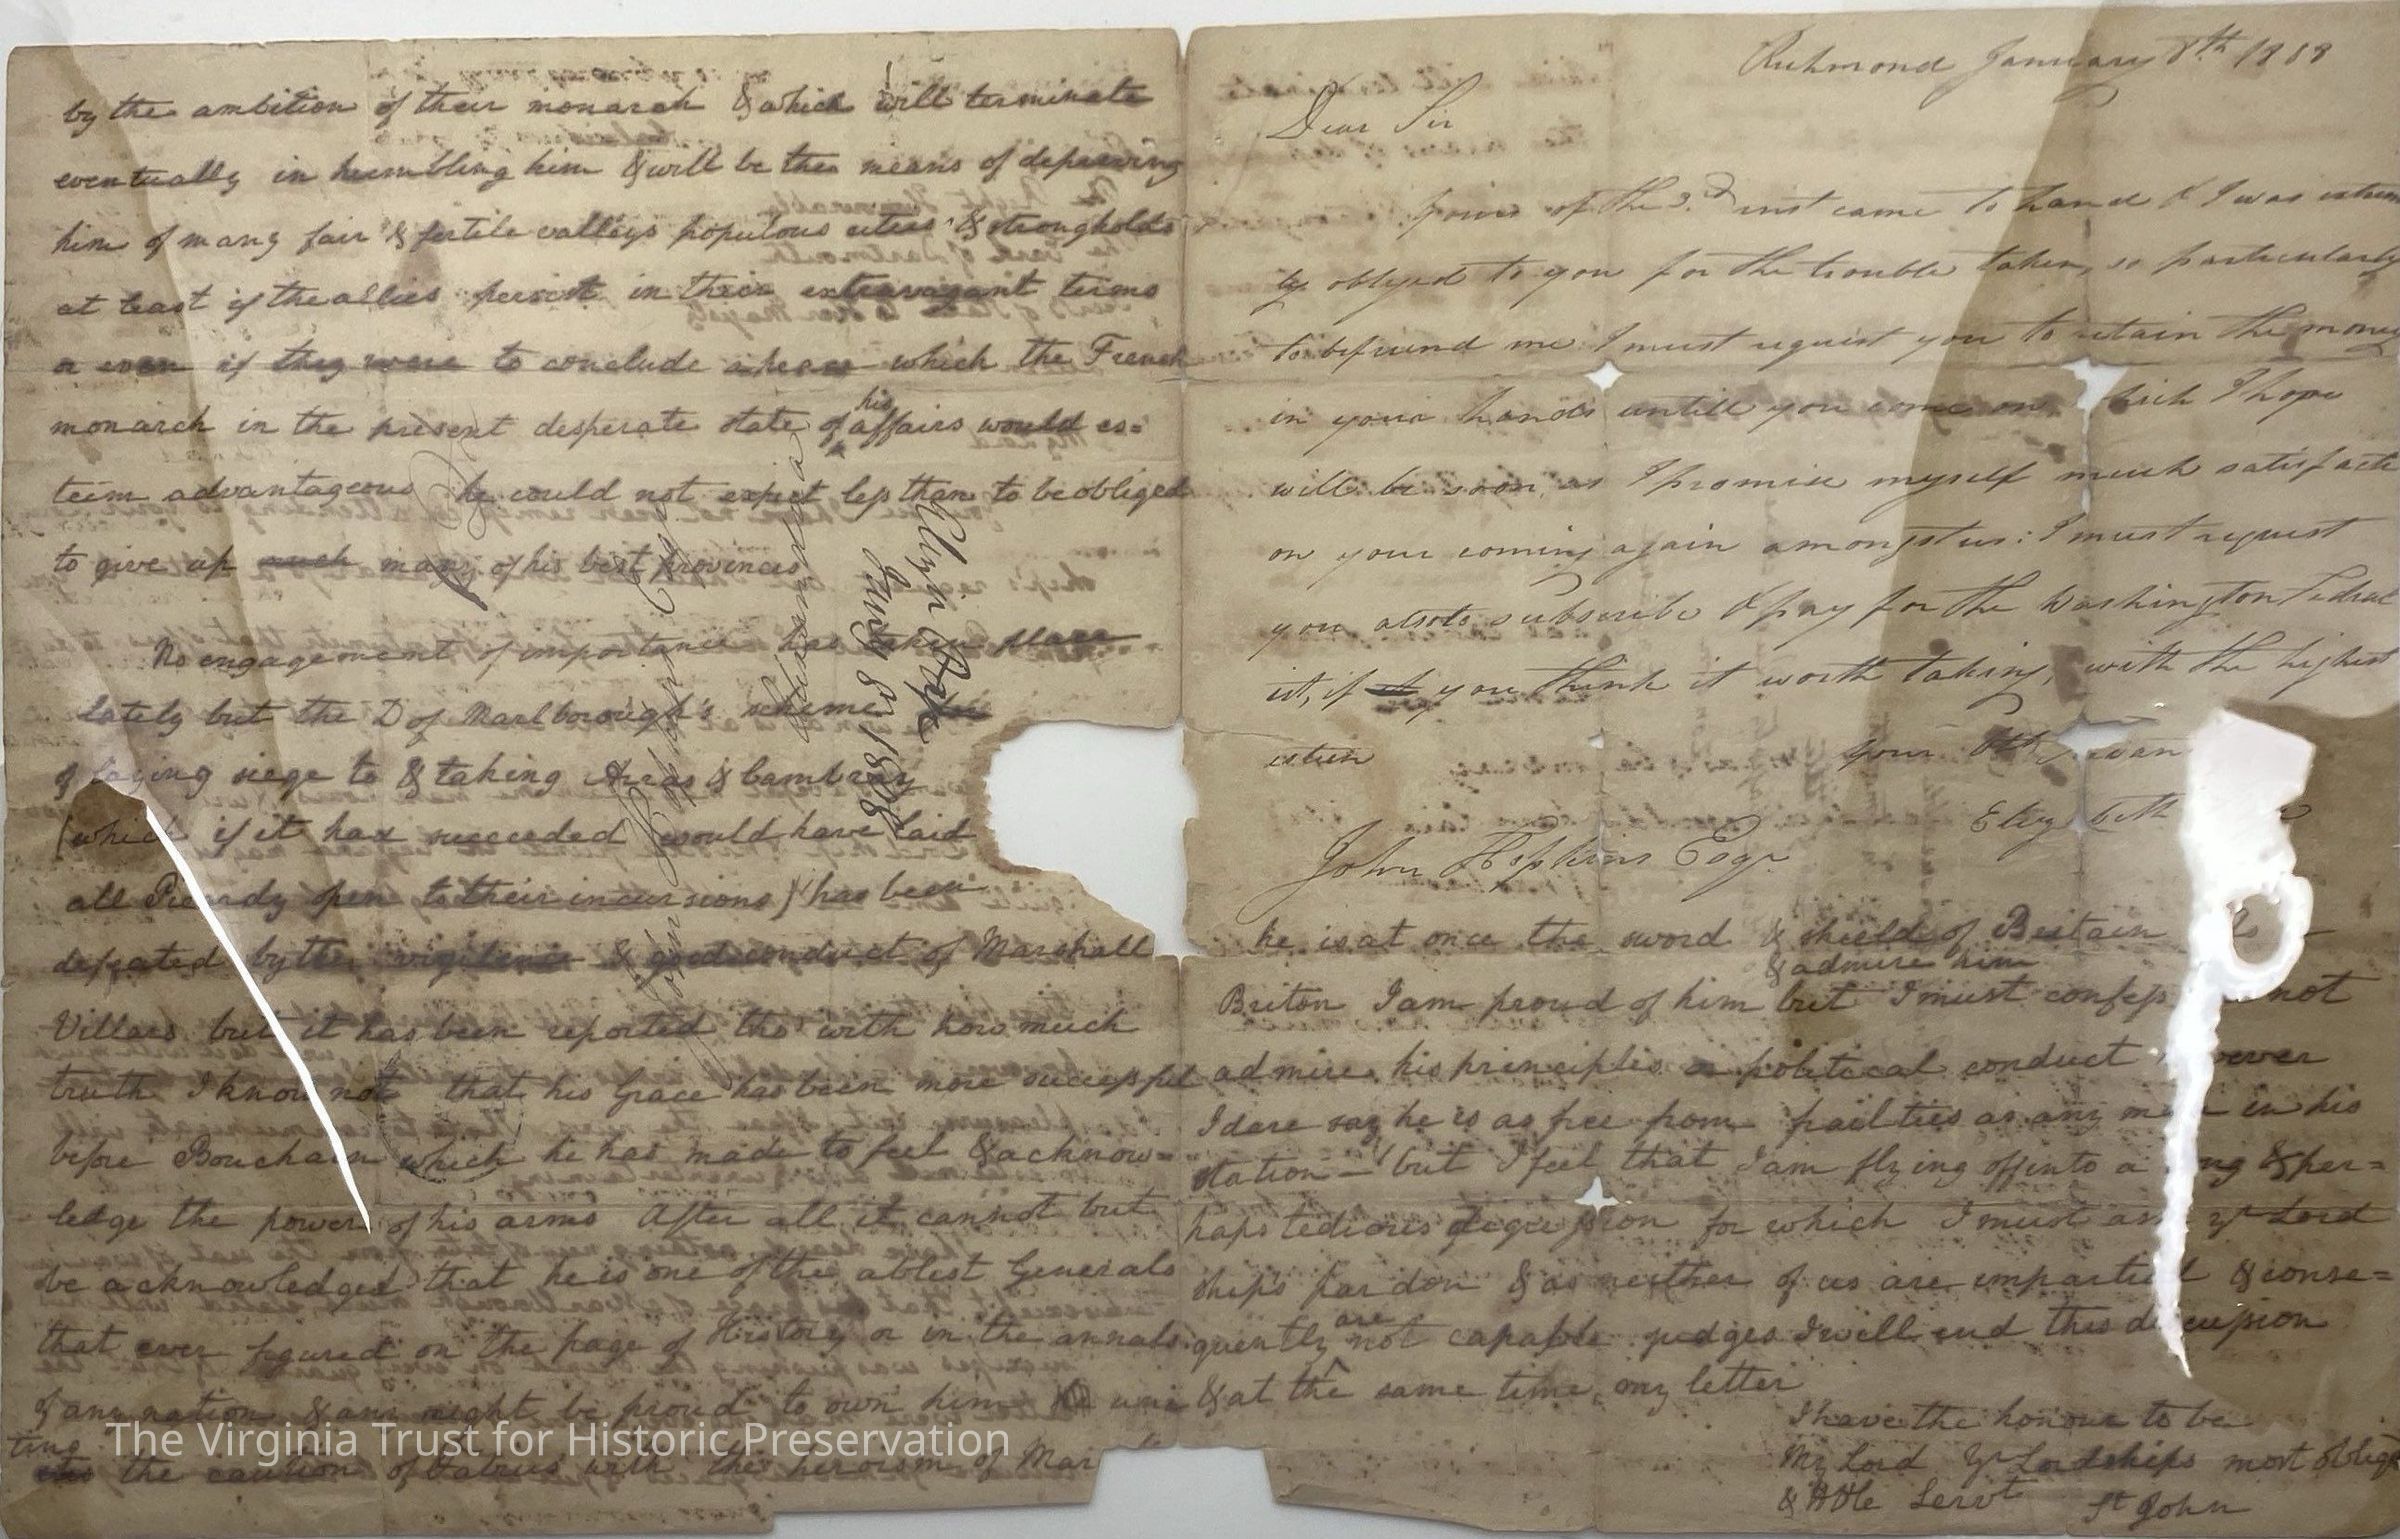 by the ambition of their monarch & which will terminate
eventually in humbling him & will be the means of depriving
him of many fair & fertile valleys populous cities & strongholds
at least if the allies persist in their extravagant terms
or even if they were to conclude a peace which the French
his
monarch in the present desperate state of affairs would es=
teem advantageous he could not expect less than to be obliged
to give up such many of his best provinces
No engagement of importance has taken place
lately but the D of Marlborough's scheme
of laying siege to & taking Arras & Cambray
(which if it had succeeded would have laid
all Picardy open to their incursions) has been
defeated by the vigilence & good conduct of Marshall
Villars but it has been reported tho' with how much
truth I know not that his Grace has been more successful
before Bouchain which he has made to feel & acknow=
ledge the power of his arms After all it cannot but
be acknowledged that he is one of the ablest Generals
that ever figured on the page of History or in the annals
of any nation & any might be proud to own him He uni
ting the caution of Fabius with the heroism of Mar
John Hopkins Esqr
Alexandria
Eliza Page
Jany 8th 1808
Richmond January 8th 1808
Dear Sir
Yours of the 3.d inst came to hand & I was extrem
ly obliged to you for the trouble taken, so particularly
to befriend me I must request you to retain the money
in your hands untill you come on which I hope
will be soon, as I promise myself much satisfacti
on your coming again amongst us: I must request
you also to subscribe & pay for the Washington Federal
ist, if you think it worth taking, with the highest
esteem your Obt Servan
Eliza beth
John Hopkins Esqr.
he is at once the sword & shield of Britain
& admire him
Briton I am proud of him but I must confess not
admire his principles or political conduct however
I dare say he is as free from frailties as any man in his
station — but I feel that I am flying off into a long & per=
haps tedious digression for which I must ask yr Lord
ships pardon & as neither of us are impartial & conse=
are
quently not capable judges I will end this discussion
& at the same time my letter
I have the honour to be
My Lord Yr Lordships most oblig
& Hble Servt St John
The Virginia Trust for Historic Preservation